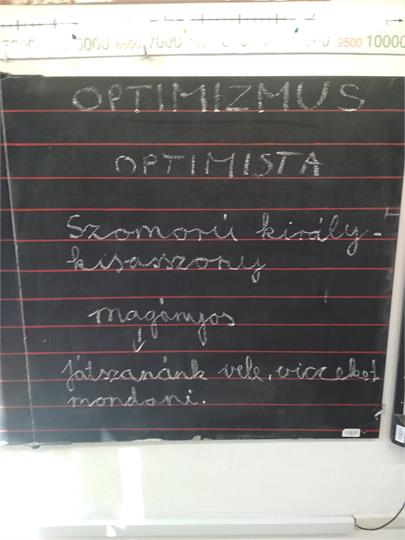 5000 6000 6500 7000 9500 10000
OPTIMIZMUS
OPTIMISTA
Szomorú király-
kisasszony
magányos
↓
Játszanánk vele, vicceket
mondani.